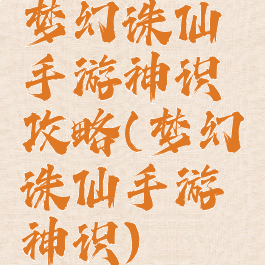 梦幻诛仙
手游神识
攻略(梦幻
诛仙手游
神识)